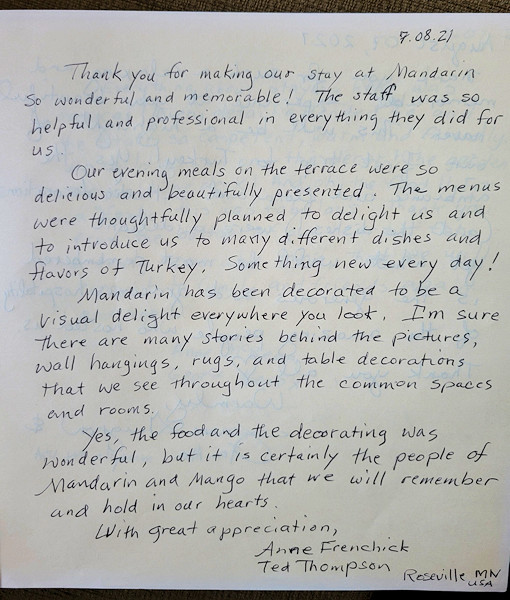 7.08.21
Thank you for making our stay at Mandarin
so wonderful and memorable! The staff was so
helpful and professional in everything they did for
us.
Our evening meals on the terrace were so
delicious and beautifully presented. The menus
were thoughtfully planned to delight us and
to introduce us to many different dishes and
flavors of Turkey. Something new every day!
Mandarin has been decorated to be a
visual delight everywhere you look. I'm sure
there are many stories behind the pictures,
wall hangings, rugs, and table decorations
that we see throughout the common spaces
and rooms.
Yes, the food and the decorating was
wonderful, but it is certainly the people of
Mandarin and Mango that we will remember
and hold in our hearts.
With great appreciation,
Anne Frenchick
Ted Thompson
Roseville MN
USA